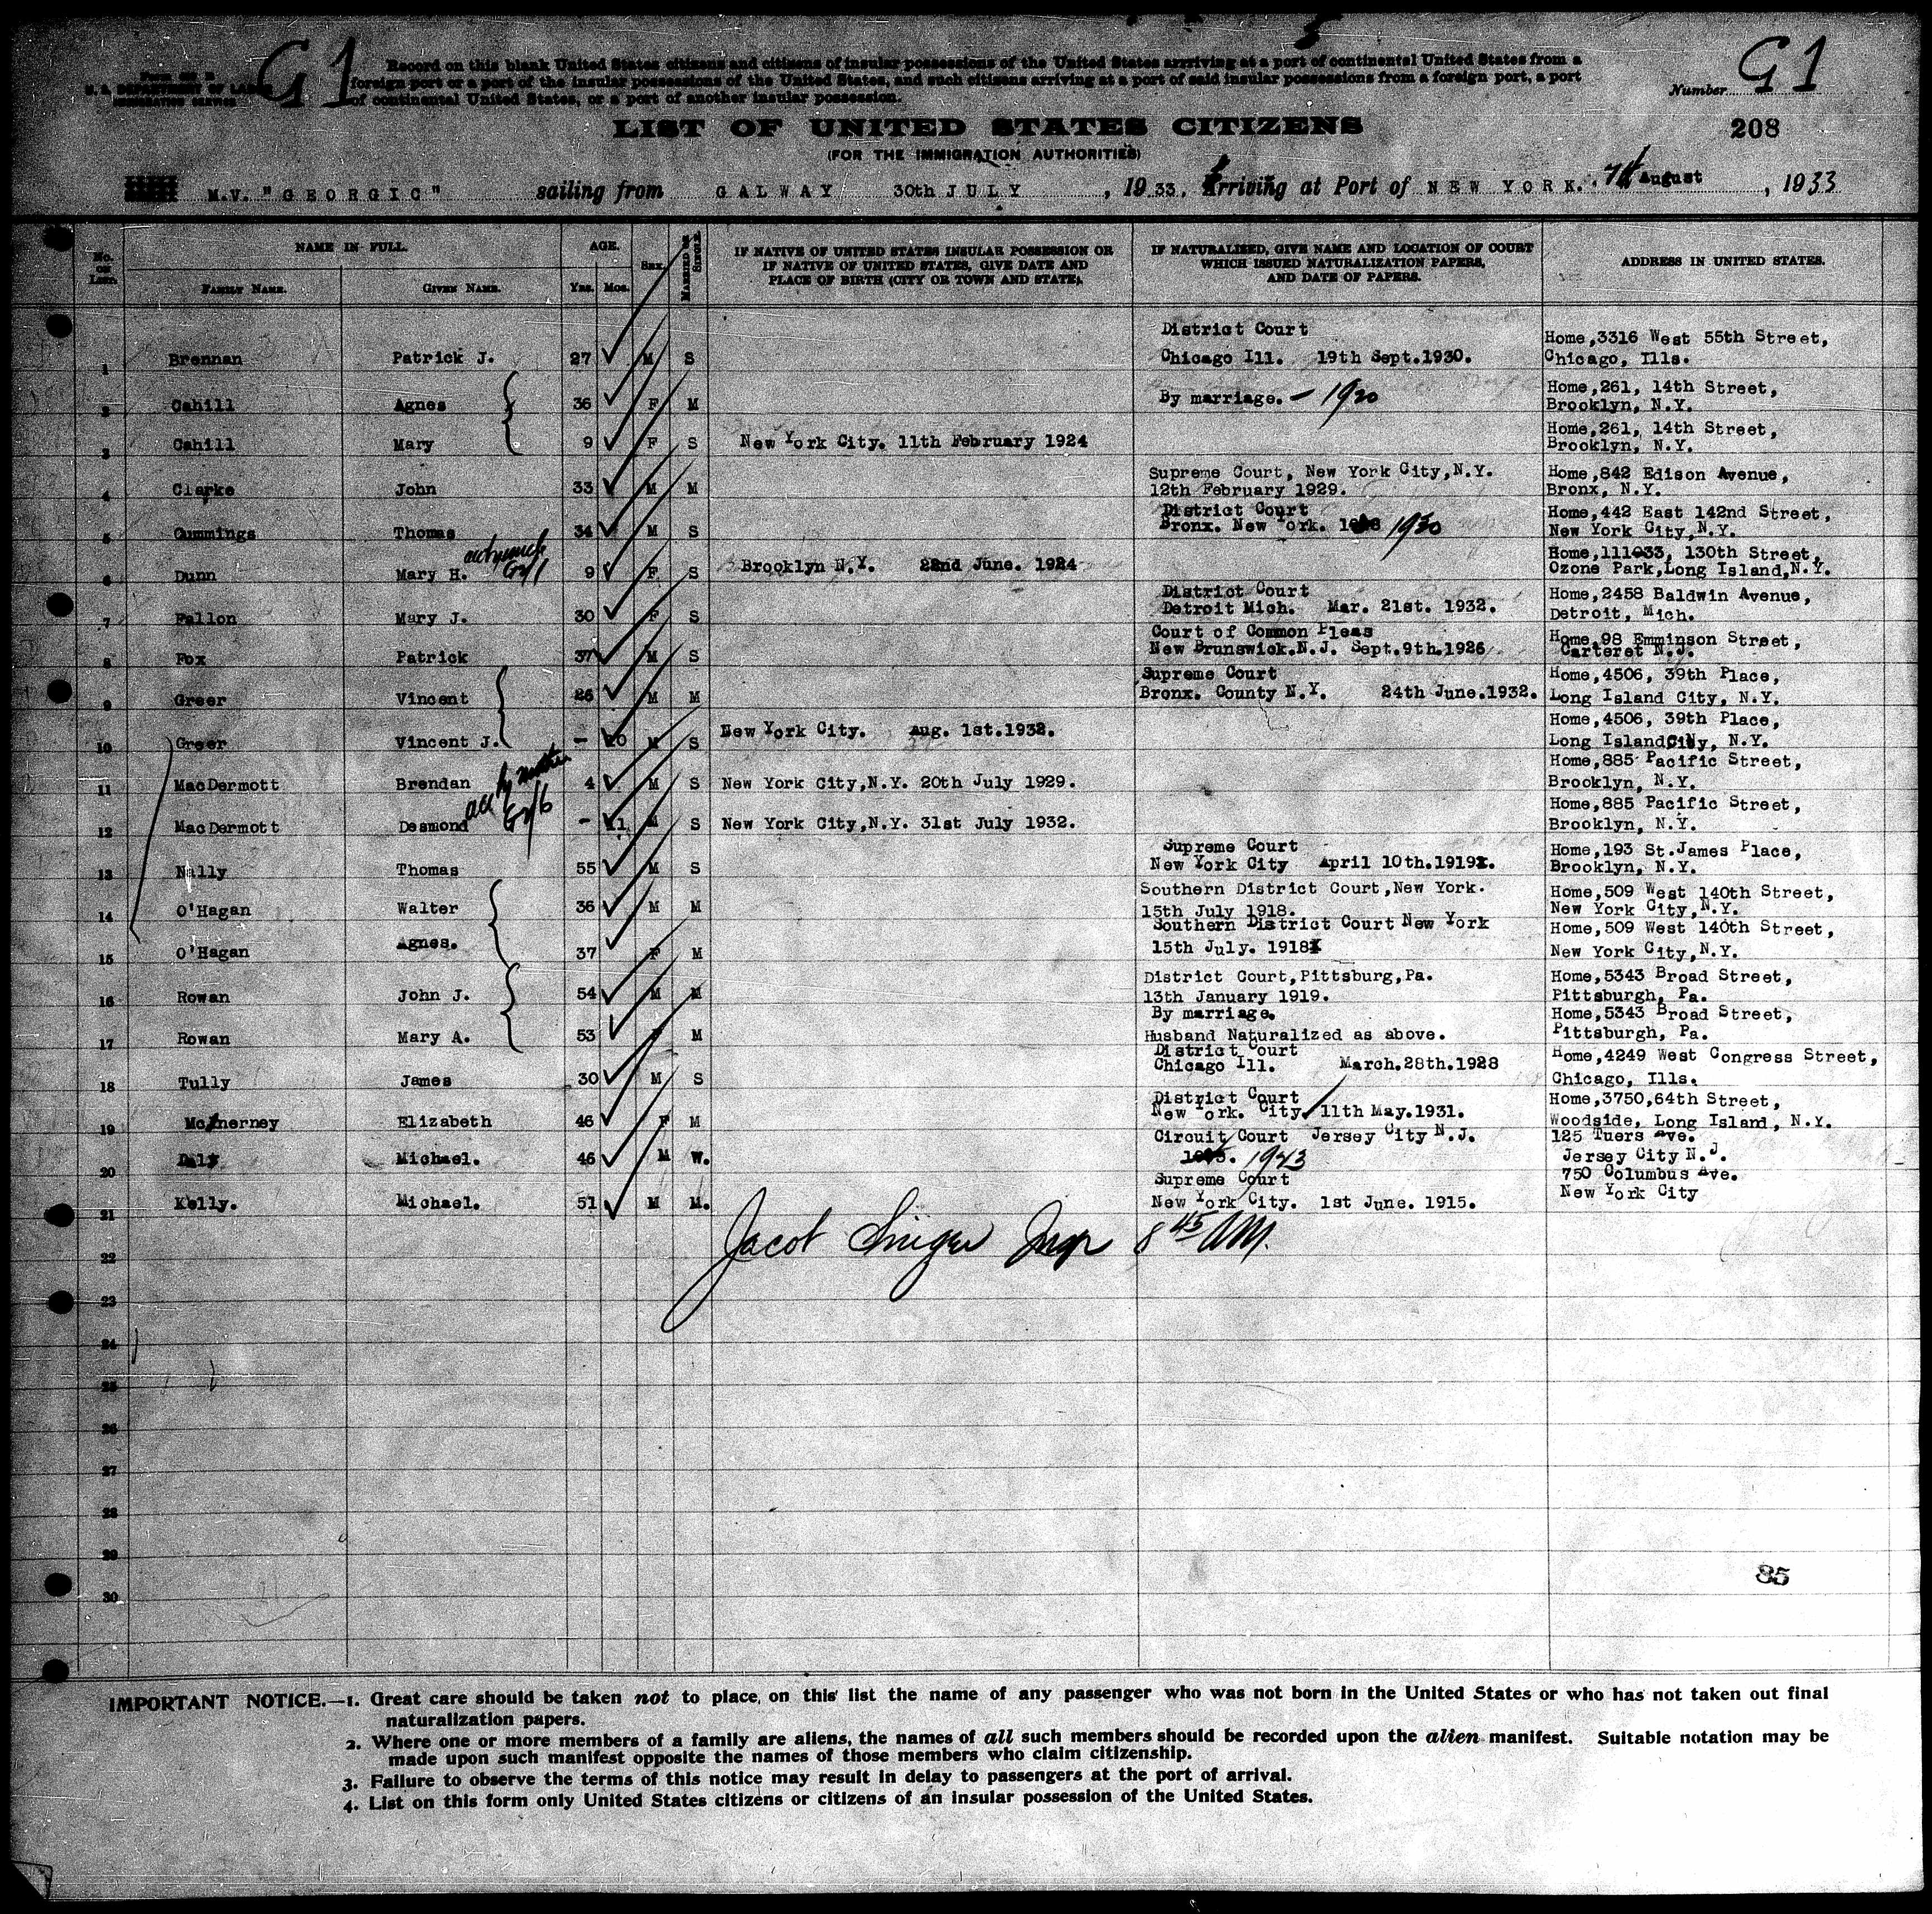 G1
Form 630 B
U. S. DEPARTMENT OF LABOR
IMMIGRATION SERVICE
Record on this blank United States citizens and citizens of insular possessions of the United States arriving at a port of continental United States from a
foreign port or a port of the insular possessions of the United States, and such citizens arriving at a port of said insular possessions from a foreign port, a port
of continental United States, or a port of another insular possession.
Number G1
LIST OF UNITED STATES CITIZENS
208
(FOR THE IMMIGRATION AUTHORITIES)
M.V. "GEORGIC" sailing from GALWAY 30th JULY, 1933, Arriving at Port of NEW YORK. 7th August, 1933
No. on List.
NAME IN FULL.
FAMILY NAME. GIVEN NAME.
AGE. YRS. MOS.
SEX.
MARRIED OR SINGLE.
IF NATIVE OF UNITED STATES INSULAR POSSESSION OR
IF NATIVE OF UNITED STATES, GIVE DATE AND
PLACE OF BIRTH (CITY OR TOWN AND STATE).
IF NATURALIZED, GIVE NAME AND LOCATION OF COURT
WHICH ISSUED NATURALIZATION PAPERS,
AND DATE OF PAPERS.
ADDRESS IN UNITED STATES.
District Court Home,3316 West 55th Street,
1 Brennan Patrick J. 27 M S Chicago Ill. 19th Sept.1930. Chicago, Ills.
Home,261, 14th Street,
2 Cahill Agnes 36 F M By marriage. - 1920 Brooklyn, N.Y.
Home,261, 14th Street,
3 Cahill Mary 9 F S New York City. 11th February 1924 Brooklyn, N.Y.
Supreme Court, New York City,N.Y. Home,842 Edison Avenue,
4 Clarke John 33 M M 12th February 1929. Bronx, N.Y.
District Court Home,442 East 142nd Street,
5 Cummings Thomas 34 M S Bronx. New York. 1930 New York City,N.Y.
Home,111033, 130th Street,
6 Dunn Mary H. 9 F S Brooklyn N.Y. 22nd June. 1924 Ozone Park,Long Island,N.Y.
District Court Home,2458 Baldwin Avenue,
7 Fallon Mary J. 30 F S Detroit Mich. Mar. 21st. 1932. Detroit, Mich.
Court of Common Pleas Home,98 Emminson Street,
8 Fox Patrick 37 M S New Brunswick.N.J. Sept.9th.1926 Carteret N.J.
Supreme Court Home,4506, 39th Place,
9 Greer Vincent 26 M M Bronx. County N.Y. 24th June.1932. Long Island City, N.Y.
Home,4506, 39th Place,
10 Greer Vincent J. - 10 M S New York City. Aug. 1st.1932. Long Island City, N.Y.
Home,885 Pacific Street,
11 MacDermott Brendan 4 M S New York City,N.Y. 20th July 1929. Brooklyn, N.Y.
acc by mother
Home,885 Pacific Street,
12 MacDermott Desmond - 11 M S New York City,N.Y. 31st July 1932. Brooklyn, N.Y.
Supreme Court Home,193 St.James Place,
13 Nally Thomas 55 M S New York City April 10th.1919. Brooklyn, N.Y.
Southern District Court,New York. Home,509 West 140th Street,
14 O'Hagan Walter 36 M M 15th July 1918. New York City,N.Y.
Southern District Court New York Home,509 West 140th Street,
15 O'Hagan Agnes. 37 F M 15th July. 1918 New York City,N.Y.
District Court,Pittsburg,Pa. Home,5343 Broad Street,
16 Rowan John J. 54 M M 13th January 1919. Pittsburgh, Pa.
By marriage. Home,5343 Broad Street,
17 Rowan Mary A. 53 F M Husband Naturalized as above. Pittsburgh, Pa.
District Court Home,4249 West Congress Street,
18 Tully James 30 M S Chicago Ill. March.28th.1928 Chicago, Ills.
District Court Home,3750,64th Street,
19 McInerney Elizabeth 46 F M New York. City 11th May.1931. Woodside, Long Island, N.Y.
Circuit Court Jersey City N.J. 125 Tuers Ave.
20 Daly Michael. 46 M W. Jersey City N.J.
Supreme Court 750 Columbus Ave.
21 Kelly. Michael. 51 M M. New York City. 1st June. 1915. New York City
22 Jacob Singer Inspr 8 45 AM.
23
24
25
26
27
28
29
85
30
IMPORTANT NOTICE.—1. Great care should be taken not to place on this list the name of any passenger who was not born in the United States or who has not taken out final
naturalization papers.
2. Where one or more members of a family are aliens, the names of all such members should be recorded upon the alien manifest. Suitable notation may be
made upon such manifest opposite the names of those members who claim citizenship.
3. Failure to observe the terms of this notice may result in delay to passengers at the port of arrival.
4. List on this form only United States citizens or citizens of an insular possession of the United States.